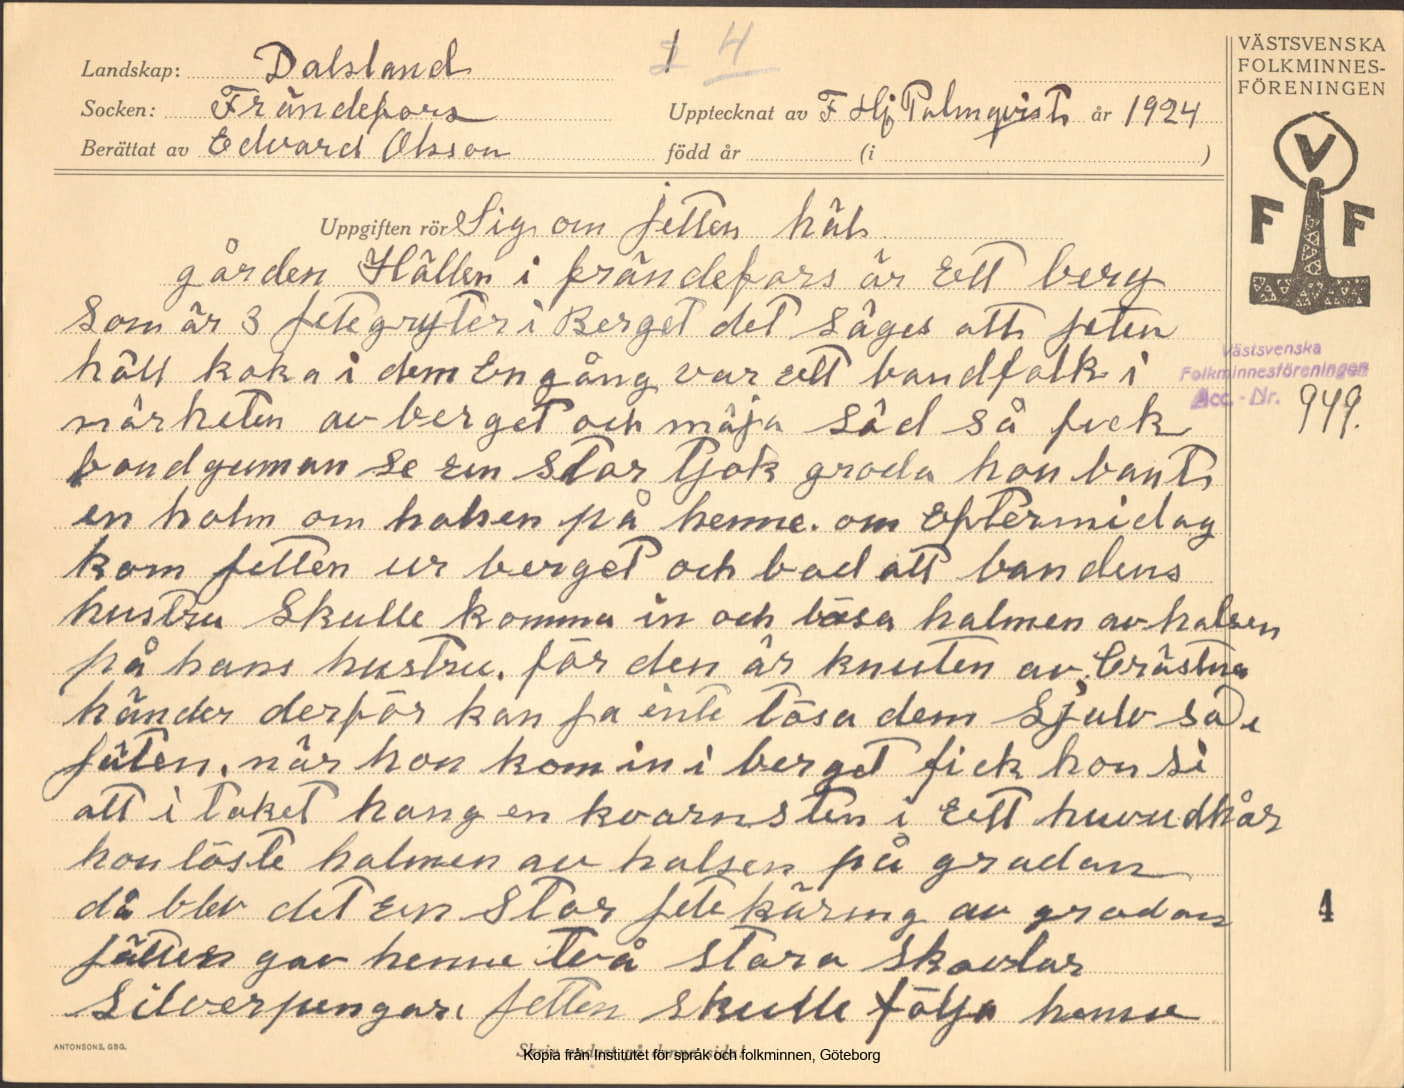 Landskap: Dalsland
1
2 4
Socken: Frändefors
Upptecknat av F Hj Palmqvist år 1924
Berättat av Edvard Olsson
född år (i )
VÄSTSVENSKA
FOLKMINNES-
FÖRENINGEN
V
F F
Uppgiften rör Sig om jetten häls
gården Hällen i frändefors är ett berg
som är 3 jetegryter i Berget det säges att jeten
häll koka i dem En gång var ett bondfolk i
närheten av berget och mäja säd så fick
bondguman se en stor tjok groda hon bant
en halm om halsen på henne. om Eftermidag
kom jetten ur berget och bad att bondens
hustru skulle komma in och lösa halmen av halsen
på hans hustru. för den är knuten av Cristna
händer derför kan ja inte lösa dem sjelv sa
jäten. när hon kom in i berget fick hon si
att i taket hang en kvarnsten i Ett huvudhår
hon löste halmen av halsen på grodan
då blev det en stor jetekäring av grodan
jätten gav henne två stora skovlar
silverpengar. jetten skulle följa henne
Västsvenska
Folkminnesföreningen
Acc.-Nr. 949.
4
ANTONSONS, GBG.
Skriv endast på denna sida!
Kopia från Institutet för språk och folkminnen, Göteborg